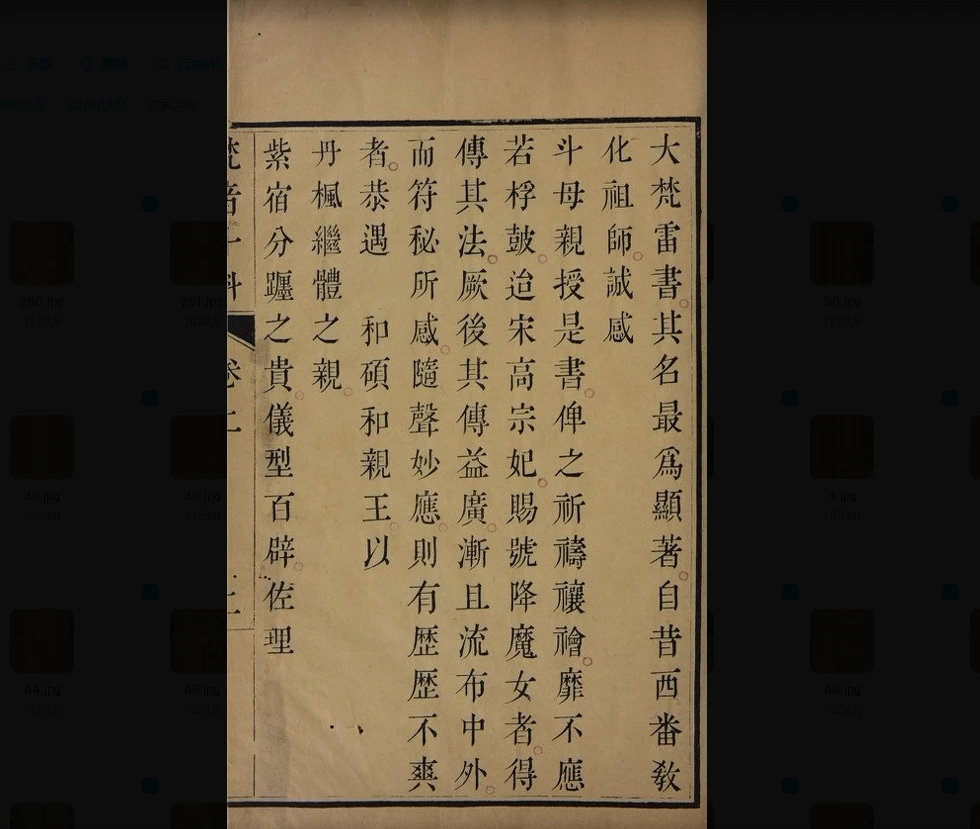 大梵雷書其名最爲顯著自昔西番教
化祖師誠感
斗母親授是書俾之祈禱禳禬靡不應
若桴鼓迨宋高宗妃賜號降魔女者得
傳其法厥後其傳益廣漸且流布中外
而符秘所感隨聲妙應則有歷歷不爽
者恭遇 和碩和親王以
丹楓繼體之親
紫宿分躔之貴儀型百辟佐理
梵音斗科 卷上 二
280.jpg
281.jpg
30.jpg
35.jpg
36.jpg
4.jpg
44.jpg
45.jpg
49.jpg